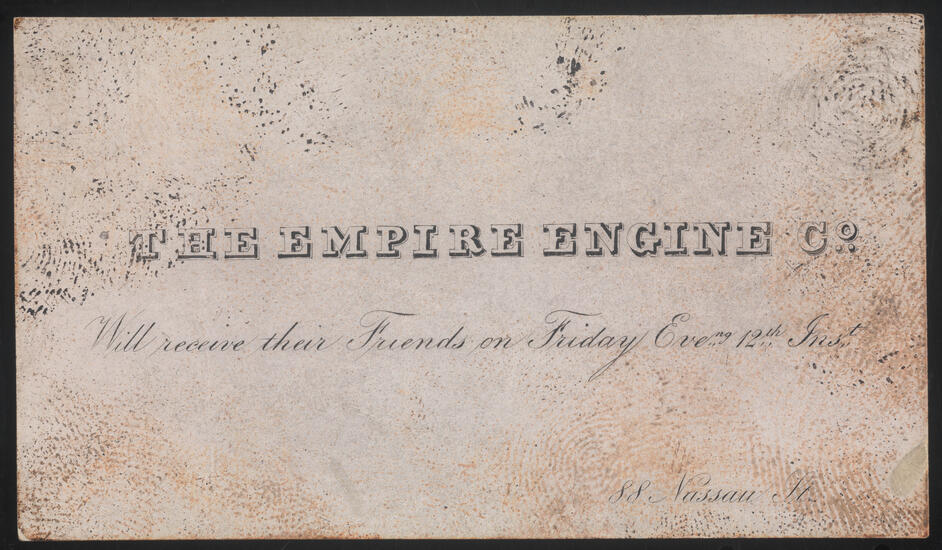 THE EMPIRE ENGINE Co.
Will receive their Friends on Friday Eveng 12th Inst.
88 Nassau St.